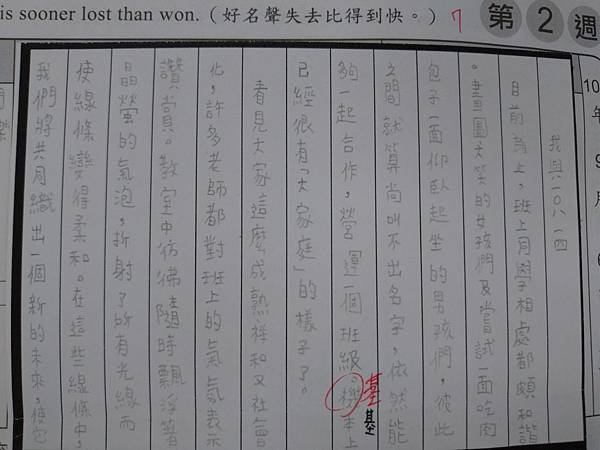 is sooner lost than won.（好名聲失去比得到快。） 7
第2週
10
年
9
月
我與一〇八一四
目前為止，班上同學相處都頗和諧
。畫圖大笑的女孩們及嘗試一面吃肉
包子一面仰臥起坐的男孩們，彼此
之間就算尚叫不出名字，依然能
夠一起合作，營運一個班級。機本上
基
基
已經很有「大家庭」的樣子了。
看見大家這麼成熟祥和又社會
化，許多老師都對班上的氣氛表示
讚賞。教室中彷彿隨時飄浮著
晶瑩的氣泡，折射了所有光線而
使線條變得柔和。在這些線條中，
我們將共同織出一個新的未來，使它